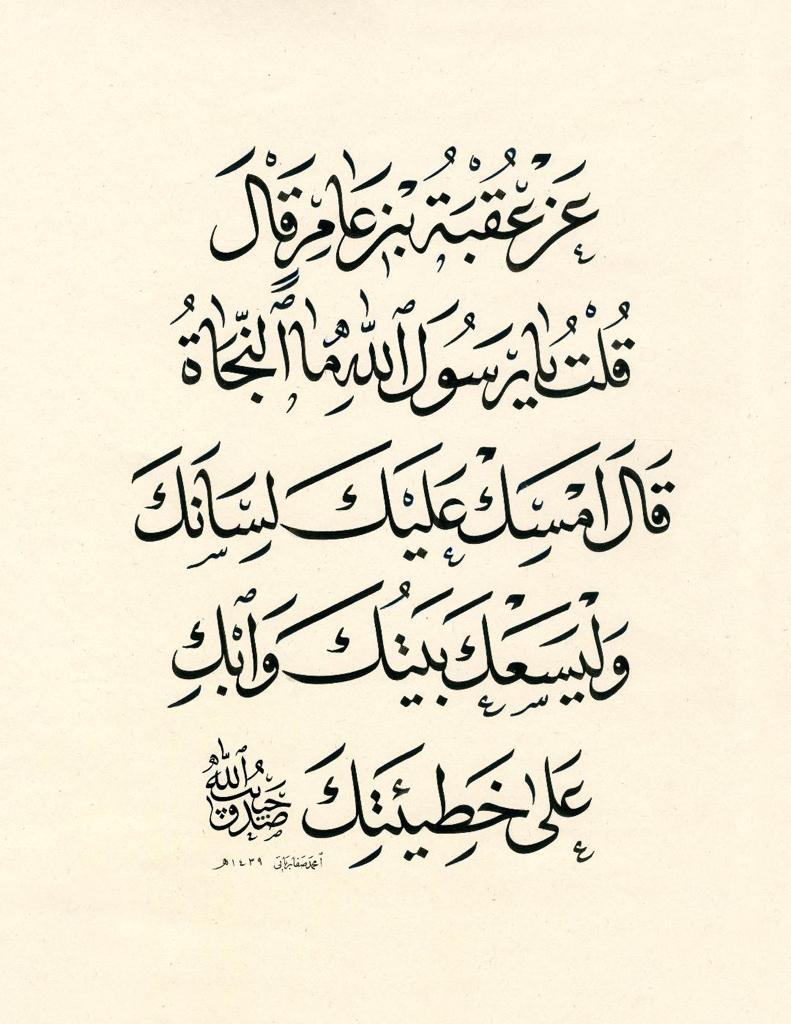 عَنْ عُقْبَةَ بْنِ عَامِرٍ قَالَ
قُلْتُ يَا رَسُولَ ٱللهِ مَا ٱلنَّجَاةُ
قَالَ اَمْسِكْ عَلَيْكَ لِسَانَكَ
وَلْيَسَعْكَ بَيْتُكَ وَٱبْكِ
عَلَى خَطِيئَتِكَ
صدق حبيب الله
١٤٣٩هـ